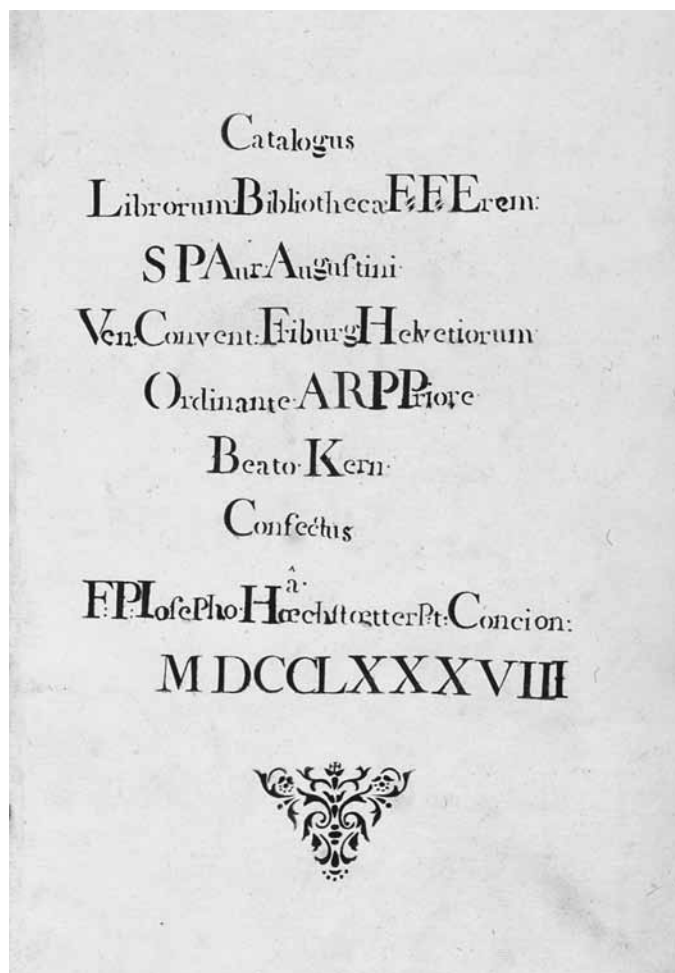 Catalogus
Librorum·Bibliothecæ F:F:Erem:
S P Aur·Auguſtini·
Ven:Convent:Friburg Helvetiorum
Ordinante·A R P Priore
Beato·Kern·
Confectus
â·
F:P:Ioſepho·Hœchſtœtter P:t:Concion:
MDCCLXXXVIII